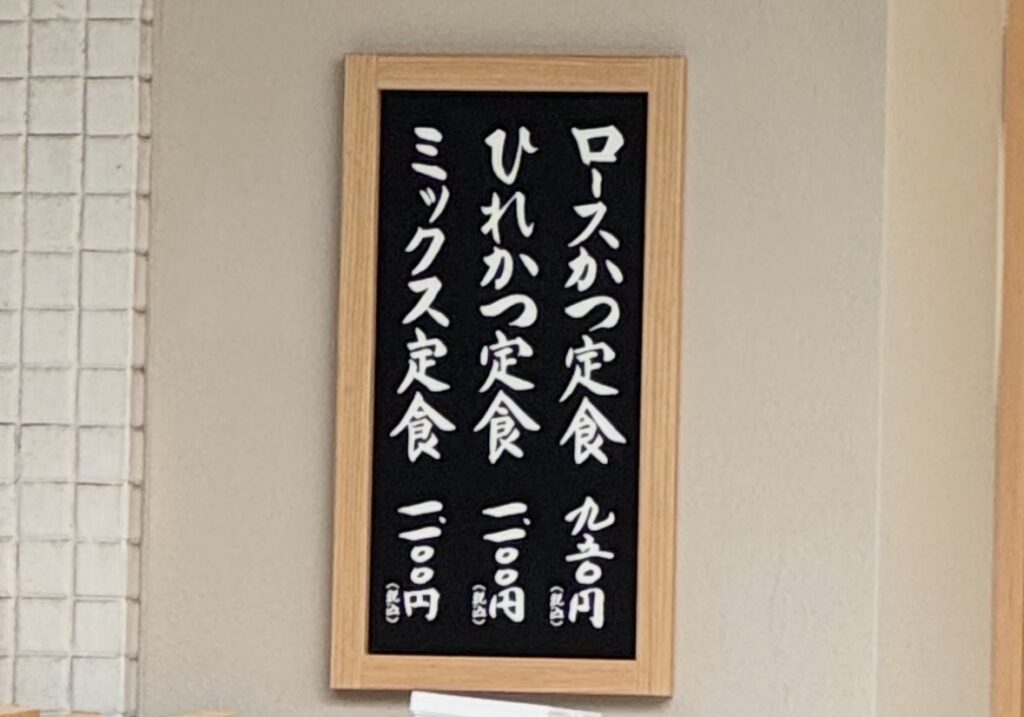 ロースかつ定食 九五〇円(税込)
ひれかつ定食 一、一〇〇円(税込)
ミックス定食 一、一〇〇円(税込)